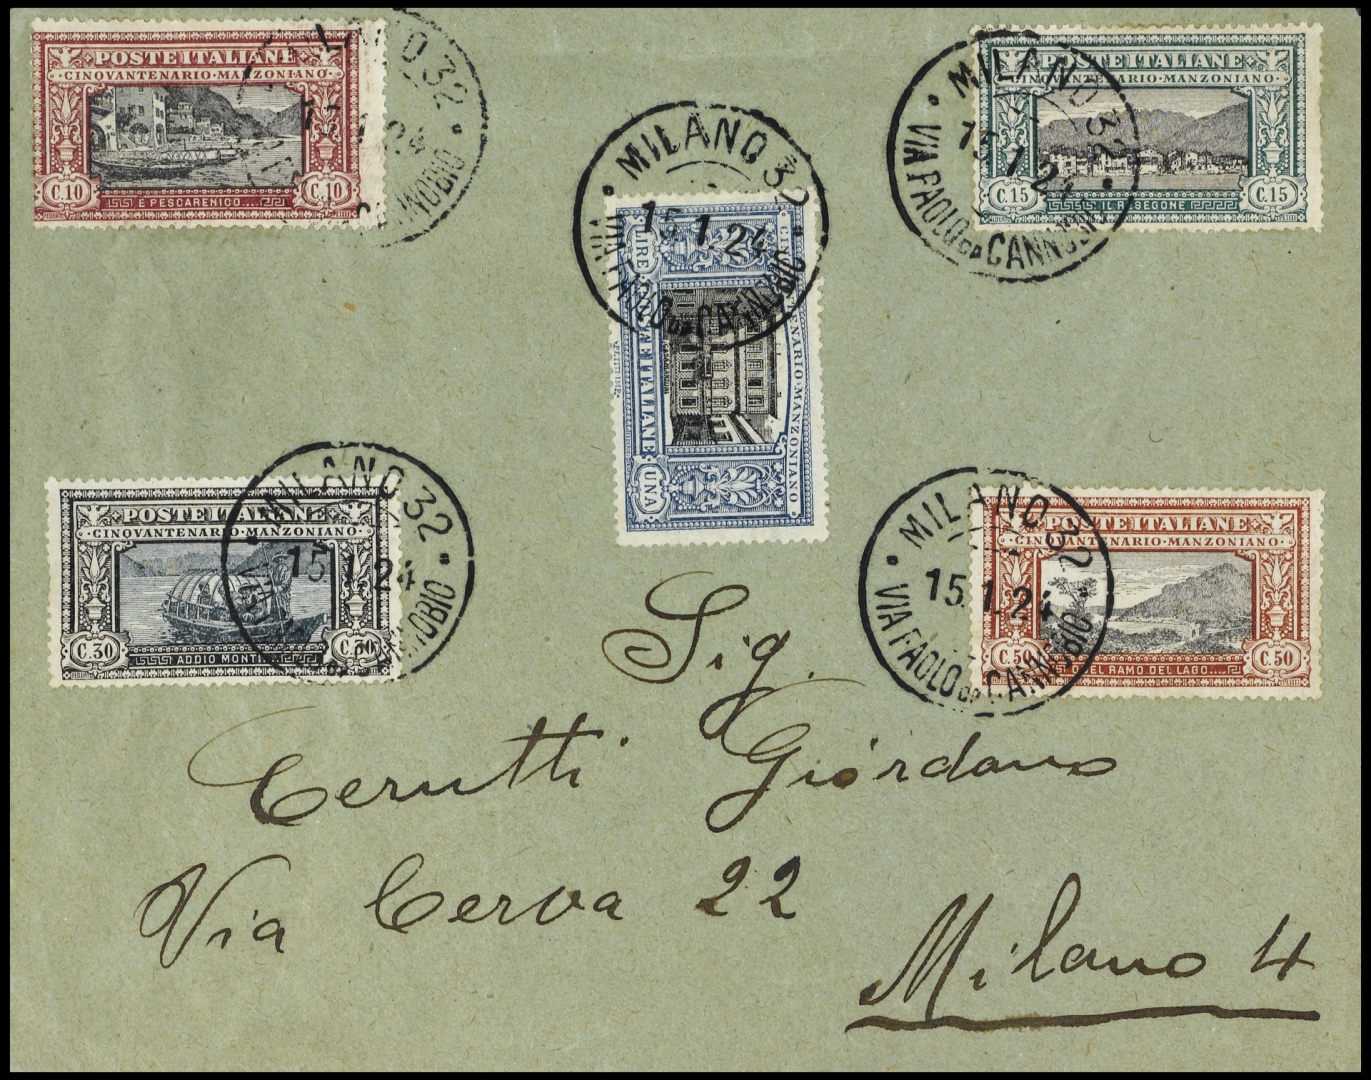 POSTE ITALIANE
CINQVANTENARIO·MANZONIANO
C.10 C.10
E PESCARENICO...
MILANO 32
POSTE ITALIANE
CINQVANTENARIO·MANZONIANO
C.15 C.15
IL RESEGONE
MILANO 32
15.1.24
VIA PAOLO DA CANNOBIO
MILANO 32
15.1.24
VIA PAOLO DA CANNOBIO
CINQVANTENARIO·MANZONIANO
POSTE ITALIANE
LIRE UNA
POSTE ITALIANE
CINQVANTENARIO·MANZONIANO
C.30 C.30
ADDIO MONTI
MILANO 32
15.1.24
POSTE ITALIANE
CINQVANTENARIO·MANZONIANO
C.50 C.50
EL RAMO DEL LAGO...
MILANO 32
15.1.24
VIA PAOLO DA CANNOBIO
Sig.
Cerutti Giordano
Via Cerva 22
Milano 4